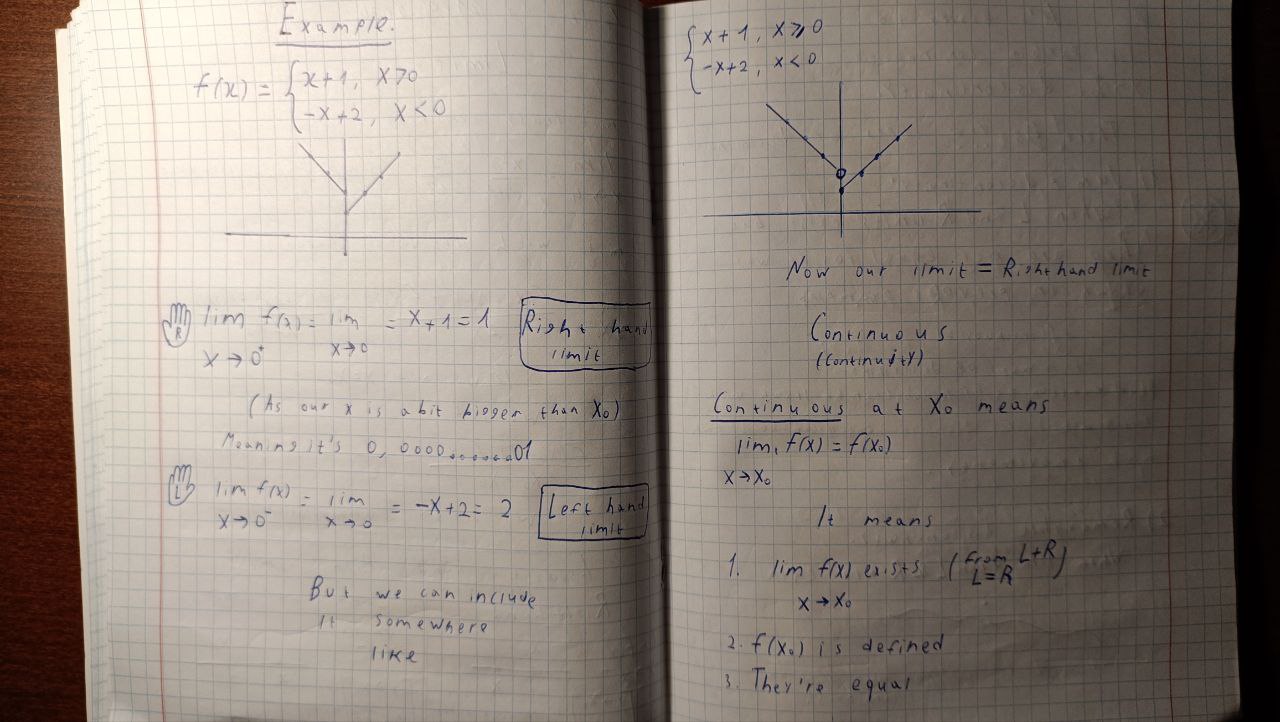 Example.
f(x) = { x+1, x>0
-x+2, x<0
R lim f(x) = lim = x+1=1 Right hand
x→0⁺ x→0 limit
(As our x is a bit bigger than x₀)
Meaning it's 0,0000.......01
L lim f(x) = lim = -x+2= 2 Left hand
x→0⁻ x→0 limit
But we can include
it somewhere
like
{ x+1, x≥0
-x+2, x<0
Now our limit = Right hand limit
Continuous
(Continuity)
Continuous at x₀ means
lim f(x) = f(x₀)
x→x₀
It means
1. lim f(x) exists (from L+R)
L=R
x→x₀
2. f(x₀) is defined
3. They're equal